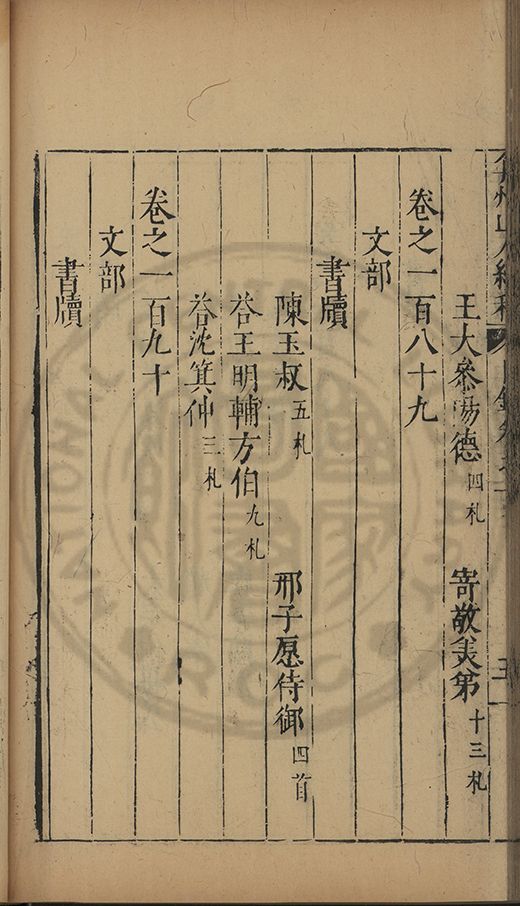 弇州山人續稿
王大參陽德 四札 寄敬美弟 十三札
卷之一百八十九
文部
書牘
陳玉叔 五札 邢子愿侍御 四首
荅王明輔方伯 九札
荅沈箕仲 三札
卷之一百九十
文部
書牘